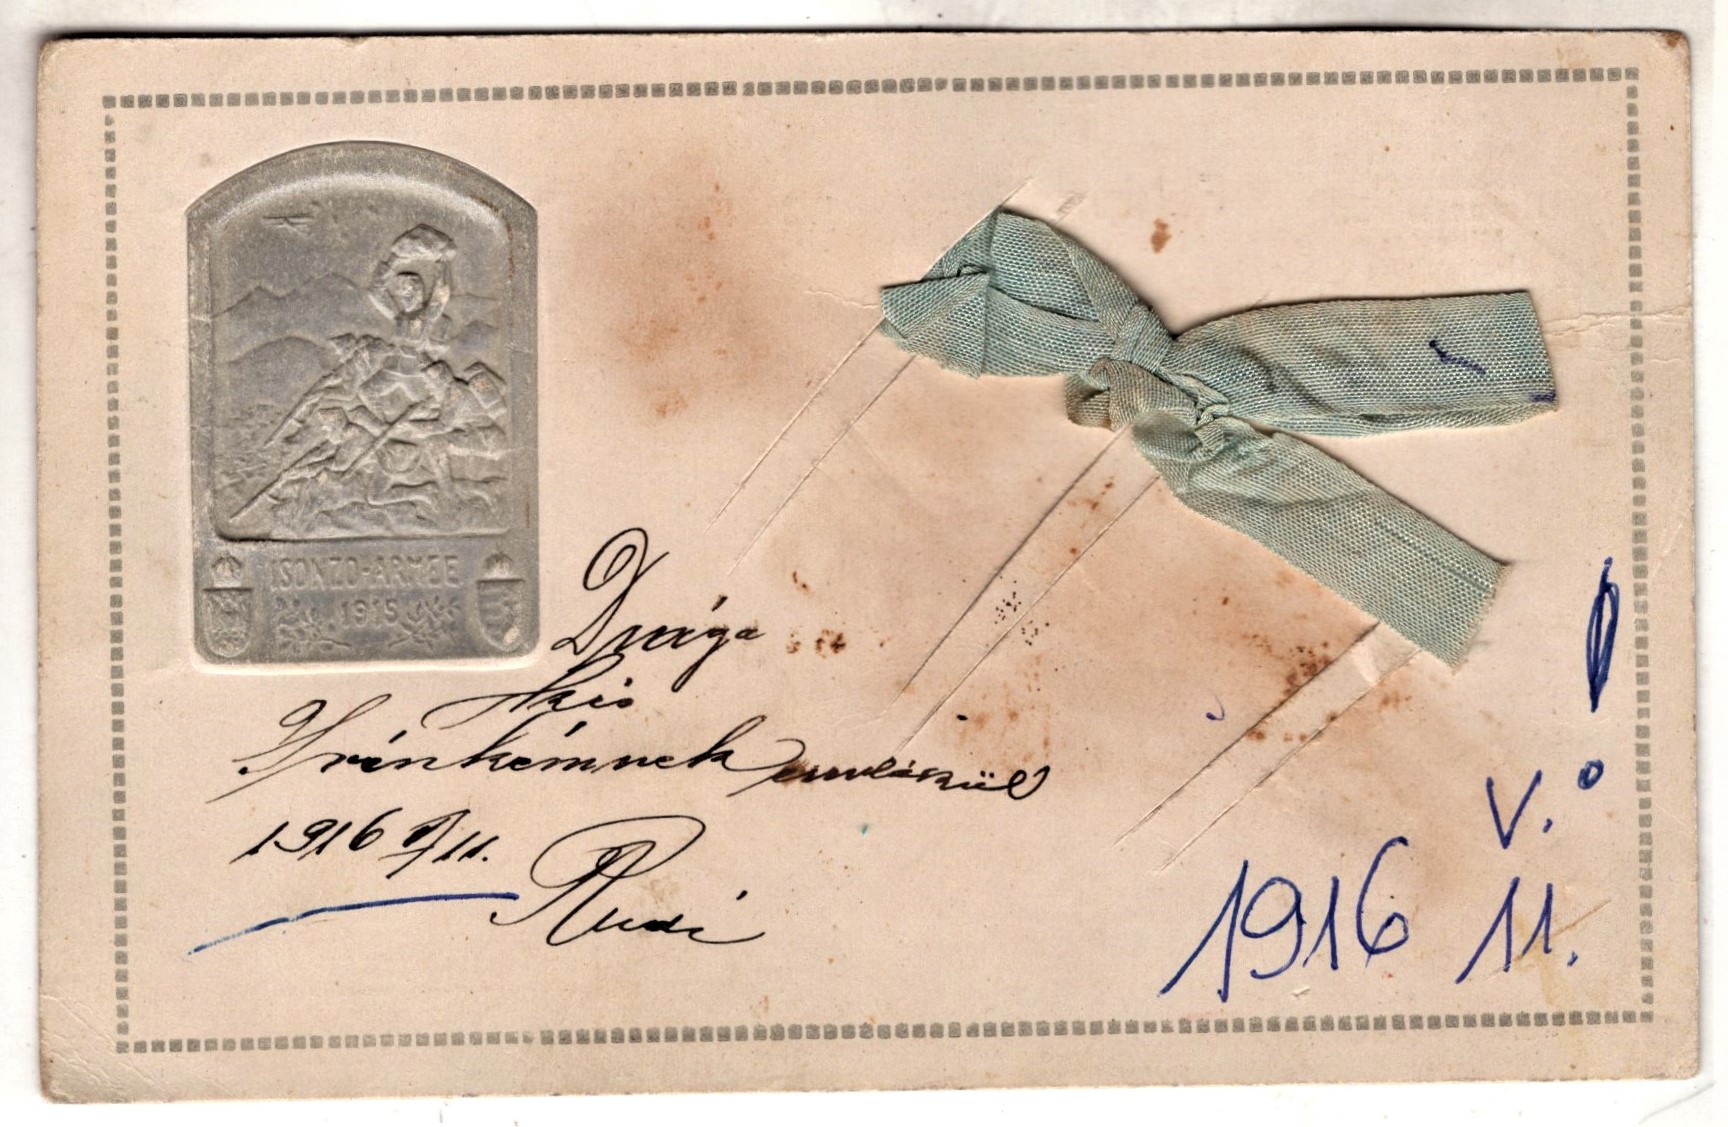 ISONZO-ARMEE
1915
Drága
kis
Irénkémnek emlékül
1916 V/11.
Rudi
V.
1916 11.